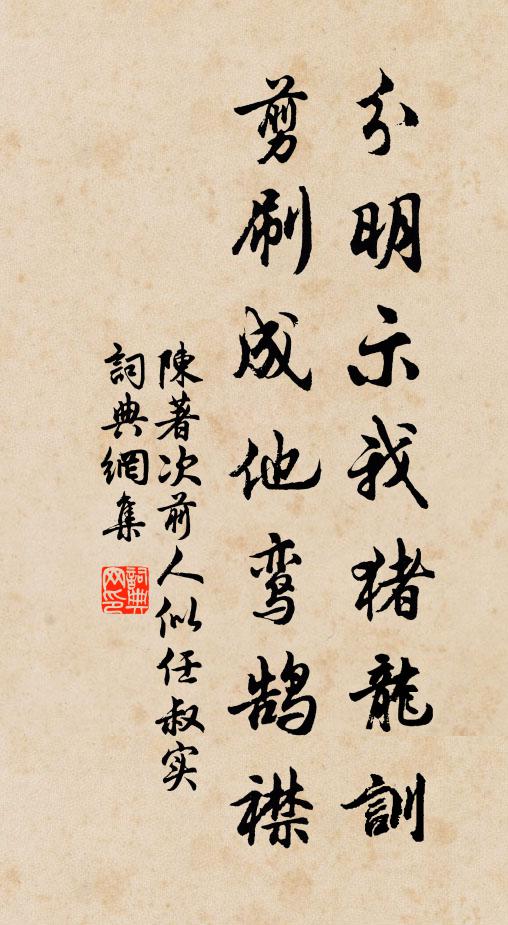 分明示我猪龍訓
剪刷成他鸾鹄襟
陳著次前人似任叔实
詞典網集
詞典
网印